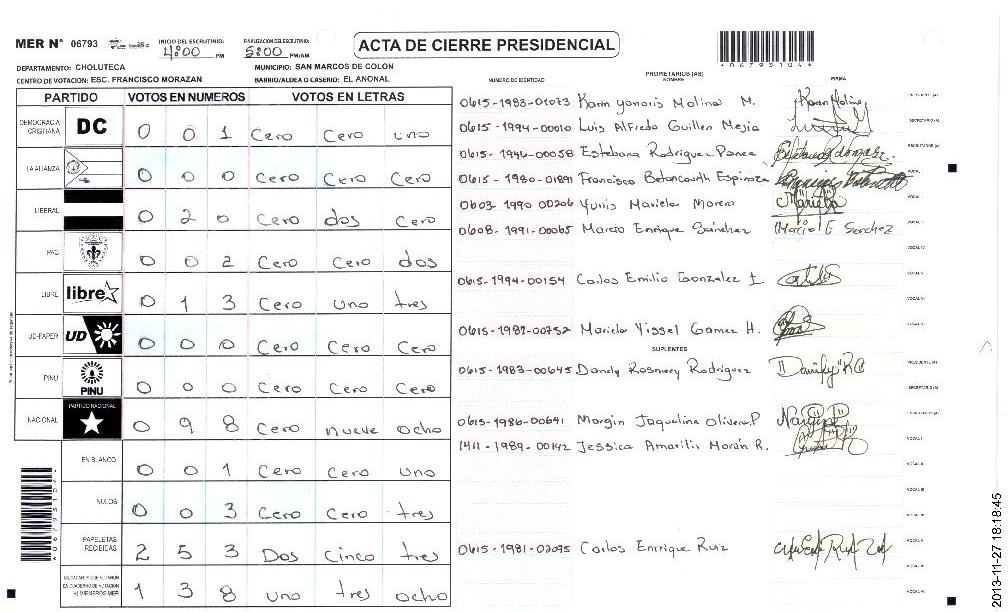 MER Nº 06793
INICIO DEL ESCRUTINIO: 4:00 PM
FINALIZACION DEL ESCRUTINIO: 5:00 PM/AM
ACTA DE CIERRE PRESIDENCIAL
DEPARTAMENTO: CHOLUTECA
MUNICIPIO: SAN MARCOS DE COLON
CENTRO DE VOTACION: ESC. FRANCISCO MORAZAN
BARRIO/ALDEA O CASERIO: EL ANONAL
PARTIDO VOTOS EN NUMEROS VOTOS EN LETRAS
DEMOCRACIA CRISTIANA DC 0 0 1 Cero Cero uno
LA ALIANZA 0 0 0 Cero Cero Cero
LIBERAL 0 2 0 Cero dos Cero
PAC 0 0 2 Cero Cero dos
LIBRE libre 0 1 3 Cero uno tres
UD-FAPER UD 0 0 0 Cero Cero Cero
PINU PINU 0 0 0 Cero Cero Cero
NACIONAL PARTIDO NACIONAL 0 9 8 Cero nueve ocho
EN BLANCO 0 0 1 Cero Cero uno
NULOS 0 0 3 Cero Cero tres
PAPELETAS RECIBIDAS 2 5 3 Dos Cinco tres
CIUDADANOS QUE VOTARON EN CUADERNO DE VOTACION (+) MIEMBROS MER 1 3 8 uno tres ocho
NUMERO DE IDENTIDAD PROPIETARIOS (AS) NOMBRE FIRMA
0615-1983-01073 Karin Yonaris Molina M. PRESIDENTE (A)
0615-1994-00010 Luis Alfredo Guillen Mejia SECRETARIO (A)
0615-1946-00058 Estebana Rodriguez Ponce ESCRUTADOR (A)
0615-1980-01891 Francisco Betancourth Espinoza VOCAL I
0603 1990 00206 Yunis Mariela Moreno "Mariela" VOCAL II
0608-1991-00065 Marcio Enrique Sánchez Mario E Sanchez VOCAL III
VOCAL IV
0615-1994-00154 Carlos Emilio Gonzalez L. VOCAL V
VOCAL VI
0615-1987-00752 Mariela Yissel Gamez H. VOCAL VII
SUPLENTES
0615-1983-00645 Dandy Rosmery Rodriguez PRESIDENTE (A)
SECRETARIO (A)
0615-1986-00641 Margin Jaqueline Olivera P ESCRUTADOR (A)
1411-1989-00142 Jessica Amarilis Morán R. VOCAL I
VOCAL II
VOCAL III
VOCAL IV
0615-1981-02095 Carlos Enrique Ruiz VOCAL V
VOCAL VI
VOCAL VII
2013-11-27 18:18:45